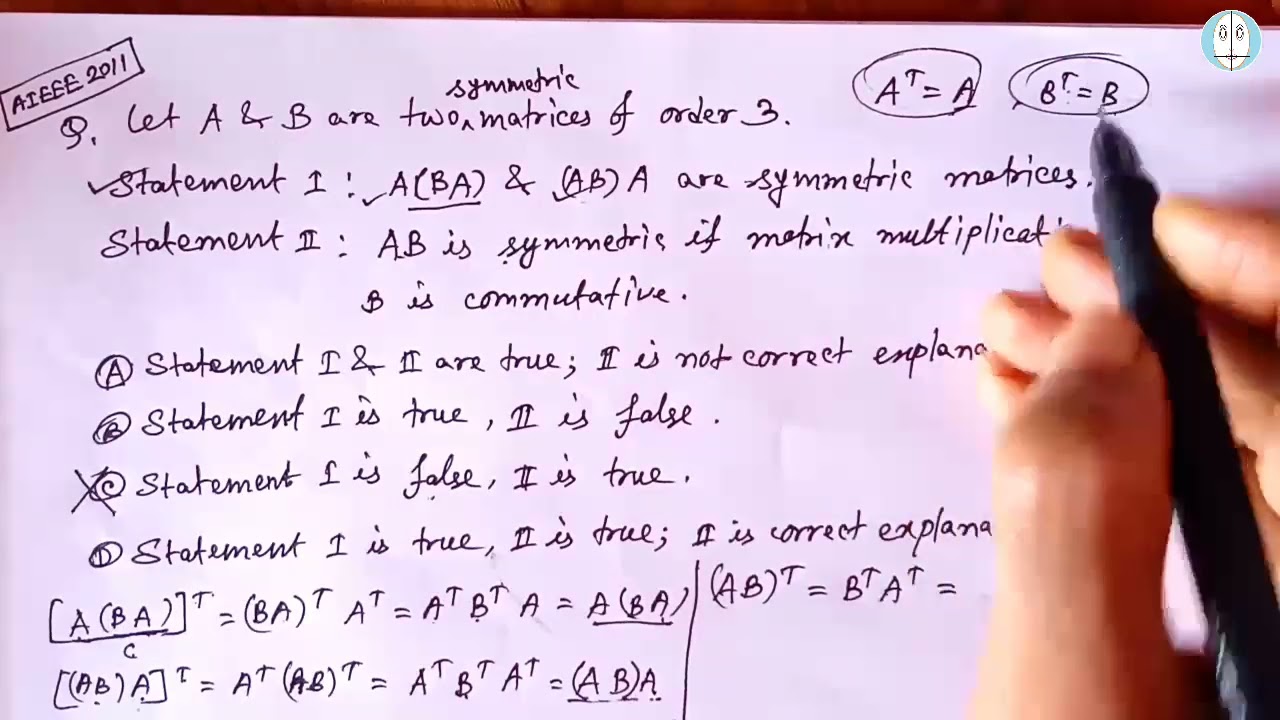 AIEEE 2011
symmetric
Aᵀ = A Bᵀ = B
Q. Let A & B are two matrices of order 3.
Statement I : A(BA) & (AB)A are symmetric matrices.
Statement II : AB is symmetric if matrix multiplicati
B is commutative.
(A) Statement I & II are true; II is not correct explana
(B) Statement I is true, II is false.
(C) Statement I is false, II is true.
(D) Statement I is true, II is true; II is correct explana
[A(BA)]ᵀ = (BA)ᵀ Aᵀ = Aᵀ Bᵀ A = A(BA)
(AB)ᵀ = BᵀAᵀ =
C
[(AB)A]ᵀ = Aᵀ(AB)ᵀ = Aᵀ Bᵀ Aᵀ = (AB)A